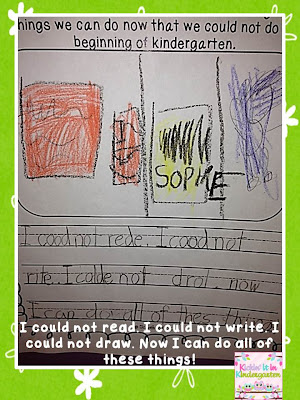 hings we can do now that we could not do
beginning of kindergarten.
SOPHIE
I cood not rede. I cood not
rite. I colde not drol. now
I can do all of thes things
I could not read. I could not write. I
could not draw. Now I can do all of
these things!
it in
Kindergarten